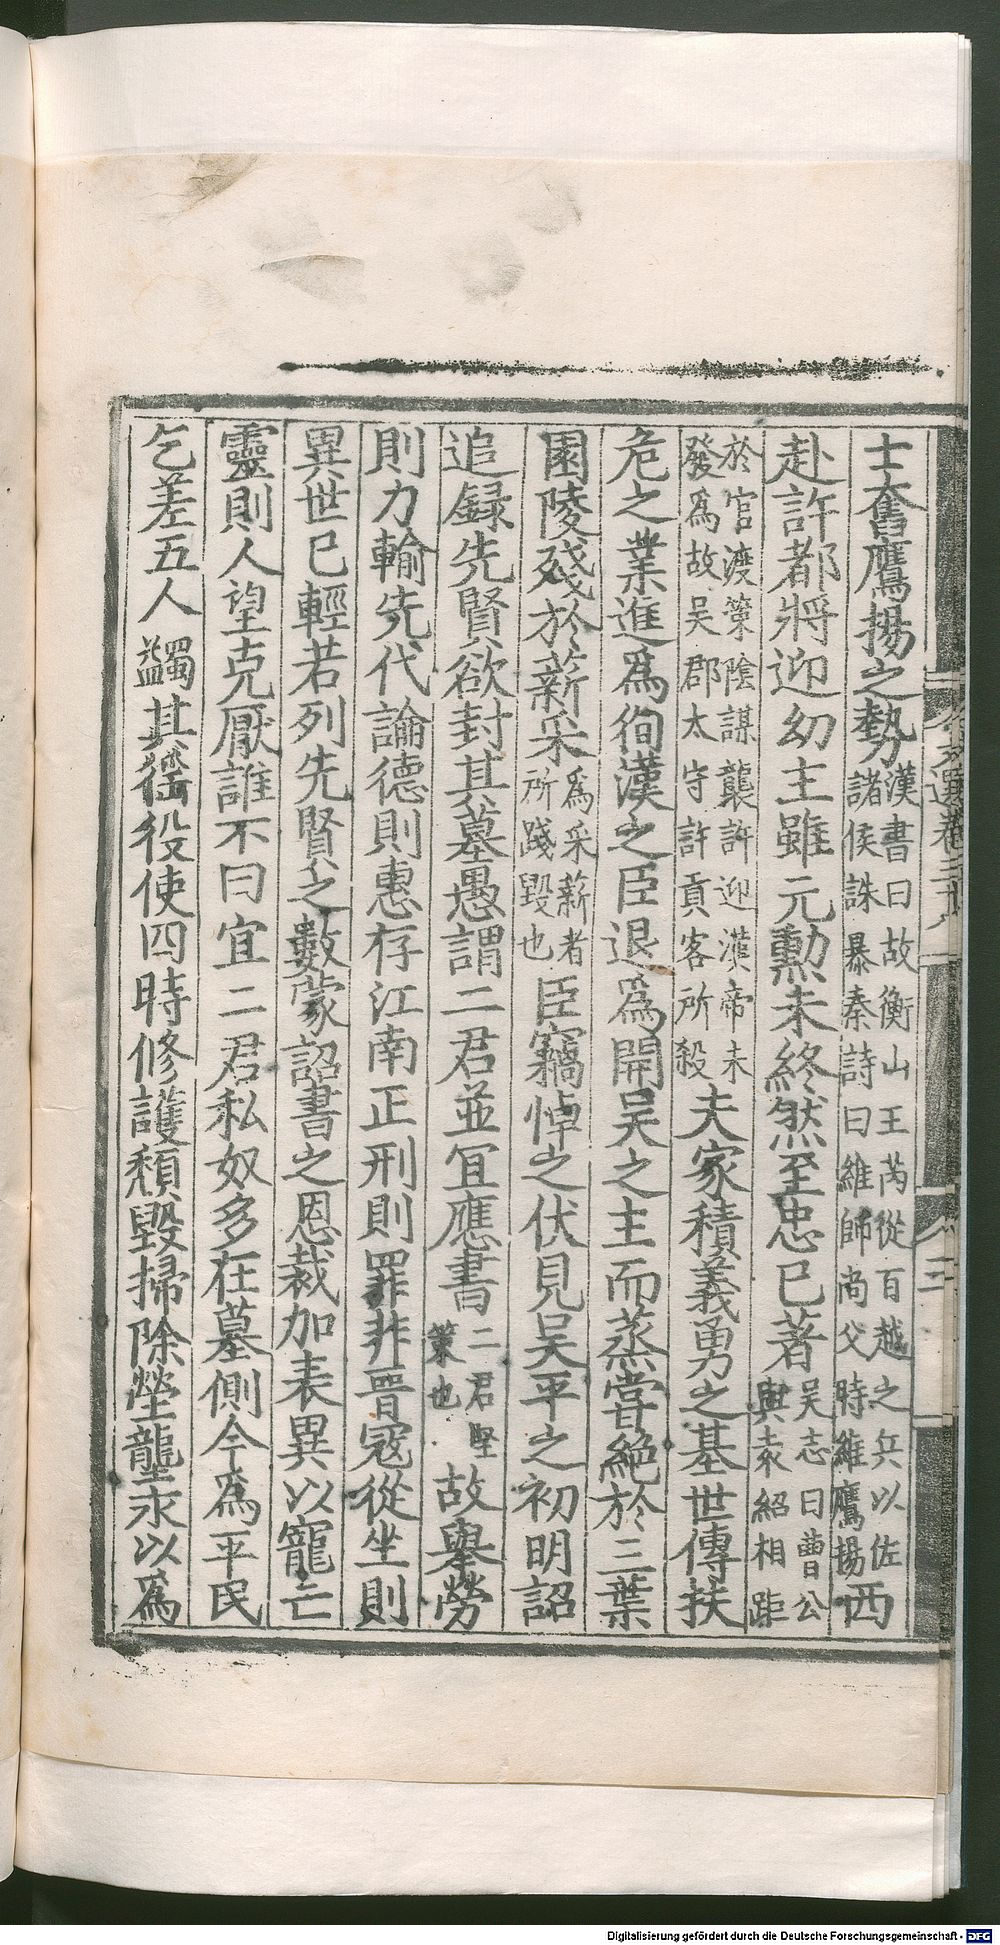 士奮鷹揚之勢漢書曰故衡山王芮從百越之兵以佐諸侯誅暴秦詩曰維師尚父時維鷹揚西
赴許都將迎幼主雖元勳未終然至忠已著吳志曰曹公與袁紹相距
於官渡策陰謀襲許迎漢帝未發爲故吳郡太守許貢客所殺夫家積義勇之基世傳扶
危之業進爲徇漢之臣退爲開吳之主而蒸嘗絶於三葉
園陵殘於薪采爲采薪者所踐毀也臣竊悼之伏見吳平之初明詔
追録先賢欲封其墓愚謂二君並冝應書二君堅策也故舉勞
則力輸先代論德則惠存江南正刑則罪非晉寇從坐則
異世已輕若列先賢之數蒙詔書之恩裁加表異以寵亡
靈則人望克厭誰不曰宜二君私奴多在墓側今爲平民
乞差五人蠲其徭役使四時修護頹毀掃除塋壟永以爲
選卷三十八
三
Digitalisierung gefördert durch die Deutsche Forschungsgemeinschaft - DFG